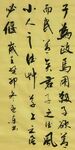 子為政焉用殺子欲善
而民善矣君子之德風
小人之德草草上之風
必偃